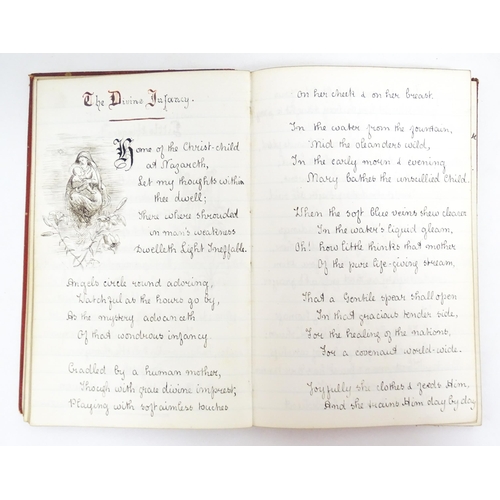 The Divine Infancy.
Home of the Christ-child
at Nazareth,
Let my thoughts within
thee dwell;
There where shrouded
in man's weakness
Dwelleth Light Ineffable.
Angels circle round adoring,
Watchful as the hours go by,
As the mystery advanceth
Of that wondrous infancy.
Cradled by a human mother,
Though with grace divine imprest;
Playing with soft aimless touches
on her cheek & on her breast.
In the water from the fountain,
Mid the oleanders wild,
In the early morn & evening
Mary bathes the unsullied Child.
When the soft blue veins shew clearer
In the water's liquid gleam,
Oh! how little thinks that mother
Of the pure life-giving stream,
That a Gentile spear shall open
In that gracious tender side,
For the healing of the nations,
For a covenant world-wide.
Joyfully she clothes & feeds Him,
And she trains Him day by day